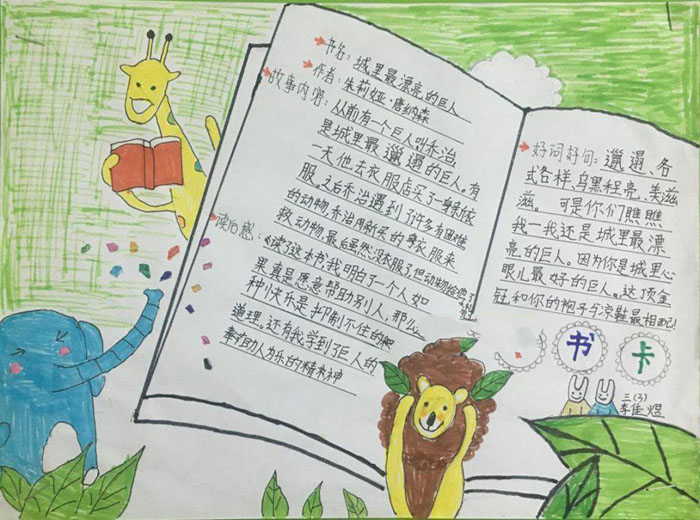 书名：城里最漂亮的巨人
作者：朱莉娅·唐纳森
故事内容：从前有一个巨人叫乔治，
是城里最邋遢的巨人。有
一天他去衣服店买了一身新衣
服。之后乔治遇到了许多有困难
的动物，乔治用新买的身衣服来
救动物，最后虽然没衣服了但动物给他了
读后感：《读了这本书，我明白了一个人如
果真是愿意帮助别人，那么
种快乐是抑制不住的
道理。还有我学到了巨人的
助人为乐的精神
好词好句：邋遢、各
式各样、乌黑程亮、美滋
滋。可是你们瞧瞧
我一我还是城里最漂
亮的巨人。因为你是城里心
眼儿最好的巨人。这顶金
冠，和你的袍子与凉鞋最相配！
书 卡
三(3)
李佳煜